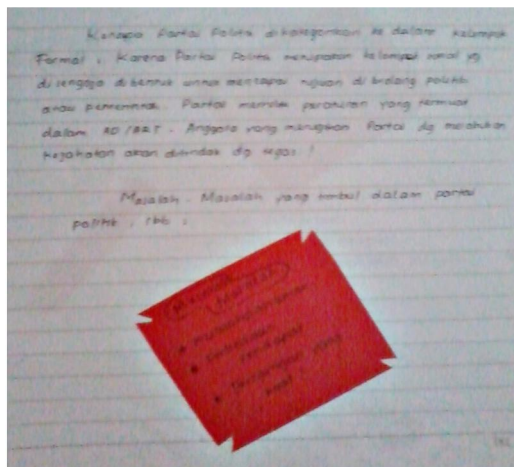 Kenapa Partai Politik dikategorikan ke dalam kelompok
Formal ; Karena Partai Politik merupakan kelompok sosial yg
disengaja dibentuk untuk mencapai tujuan di bidang politik
atau pemerintah. Partai memiliki peraturan yang termuat
dalam AD/ART. Anggota yang merugikan Partai dg melakukan
kejahatan akan ditindak dg tegas !
Masalah-Masalah yang timbul dalam partai
politik, sbb :
Perbedaan
pendapat